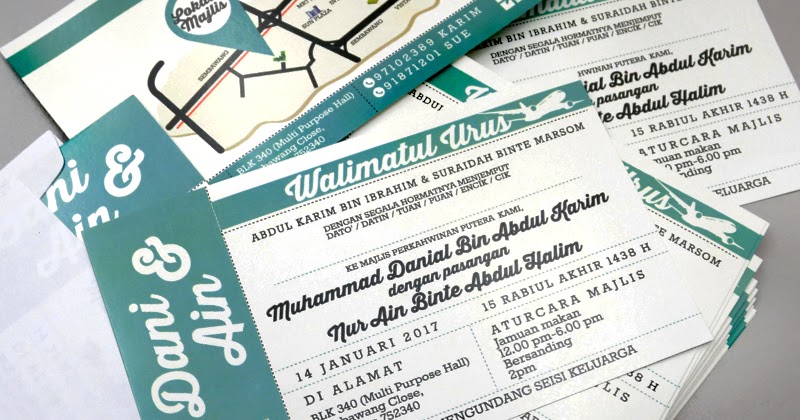 Lokasi
Majlis
SUN PLAZA
SEMBAWANG
SEMBAWANG
97102389 KARIM
91871201 SUE
BLK 340 (Multi Purpose Hall)
bawang Close,
752340
ABDUL
Walimatul
KARIM BIN IBRAHIM & SURAIDAH BINTE MARSOM
DENGAN SEGALA HORMATNYA MENJEMPUT
DATO' / DATIN / TUAN / PUAN / ENCIK / CIK
KAHWINAN PUTERA KAMI,
Danial Bin Abdul Karim
pasangan
Binte Abdul Halim
15 RABIUL AKHIR 1438 H
ATURCARA MAJLIS
Jamuan makan
pm-6.00 pm
sanding
KELUARGA
Dani
&
Ain
Dani &
Ain
Walimatul Urus
ABDUL KARIM BIN IBRAHIM & SURAIDAH BINTE MARSOM
DENGAN SEGALA HORMATNYA MENJEMPUT
DATO' / DATIN / TUAN / PUAN / ENCIK / CIK
KE MAJLIS PERKAHWINAN PUTERA KAMI,
Muhammad Danial Bin Abdul Karim
dengan pasangan
Nur Ain Binte Abdul Halim
14 JANUARI 2017
DI ALAMAT
BLK 340 (Multi Purpose Hall)
bawang Close,
752340
15 RABIUL AKHIR 1438 H
ATURCARA MAJLIS
Jamuan makan
12.00 pm-6.00 pm
Bersanding
2pm
MENGUNDANG SEISI KELUARGA
Urus
MARSOM
1438 H
MAJLIS